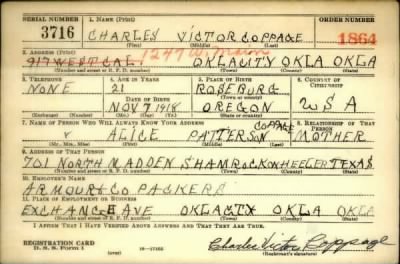 SERIAL NUMBER 1. NAME (Print) ORDER NUMBER
3716 CHARLES VICTOR COPPAGE 1864
(First) (Middle) (Last)
2. ADDRESS (Print) 1247 W. Main
917 WEST CAL OKLA CITY OKLA OKLA
(Number and street or R. F. D. number) (Town) (County) (State)
3. TELEPHONE 4. AGE IN YEARS 5. PLACE OF BIRTH 6. COUNTRY OF CITIZENSHIP
NONE 21 ROSEBURG
DATE OF BIRTH
NOV 7 1918 OREGON U S A
7. NAME OF PERSON WHO WILL ALWAYS KNOW YOUR ADDRESS 8. RELATIONSHIP OF THAT PERSON
COPPAGE
ALICE PATTERSON MOTHER
(Mr., Mrs., Miss) (First) (Middle) (Last)
9. ADDRESS OF THAT PERSON
701 NORTH MADDEN SHAMROCK WHEELER TEXAS
(Number and street or R. F. D. number) (Town) (County) (State)
10. EMPLOYER'S NAME
ARMOUR & CO PACKERS
11. PLACE OF EMPLOYMENT OR BUSINESS
EXCHANGE AVE OKLA CITY OKLA OKLA
(Number and street or R. F. D. number) (Town) (County) (State)
I AFFIRM THAT I HAVE VERIFIED ABOVE ANSWERS AND THAT THEY ARE TRUE.
REGISTRATION CARD
D. S. S. Form 1 (over) Charles Victor Coppage
(Registrant's signature)